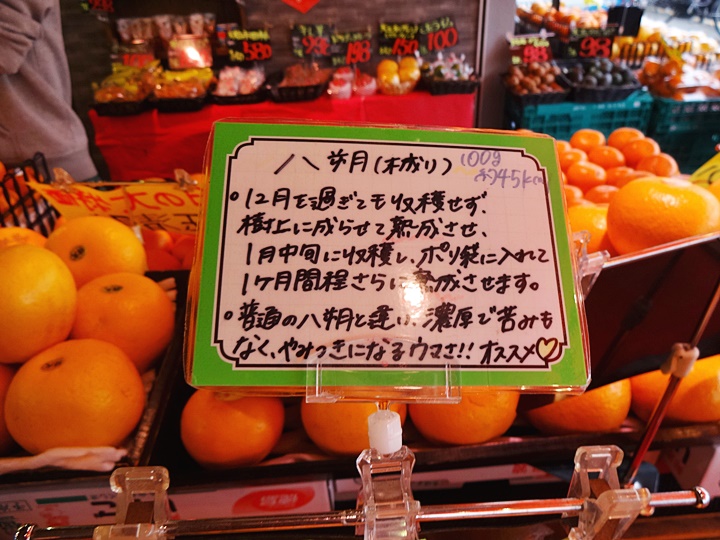 八朔(木成り) 100g
約45kcal
。12月を過ぎても収穫せず、
樹上に成らせて熟成させ、
1月中旬に収穫し、ポリ袋に入れて
1ヶ月間程さらに熟成させます。
。普通の八朔と違い、濃厚で苦みも
なく、やみつきになるウマさ!! オススメ♡
580
98
198
150
100
98
98